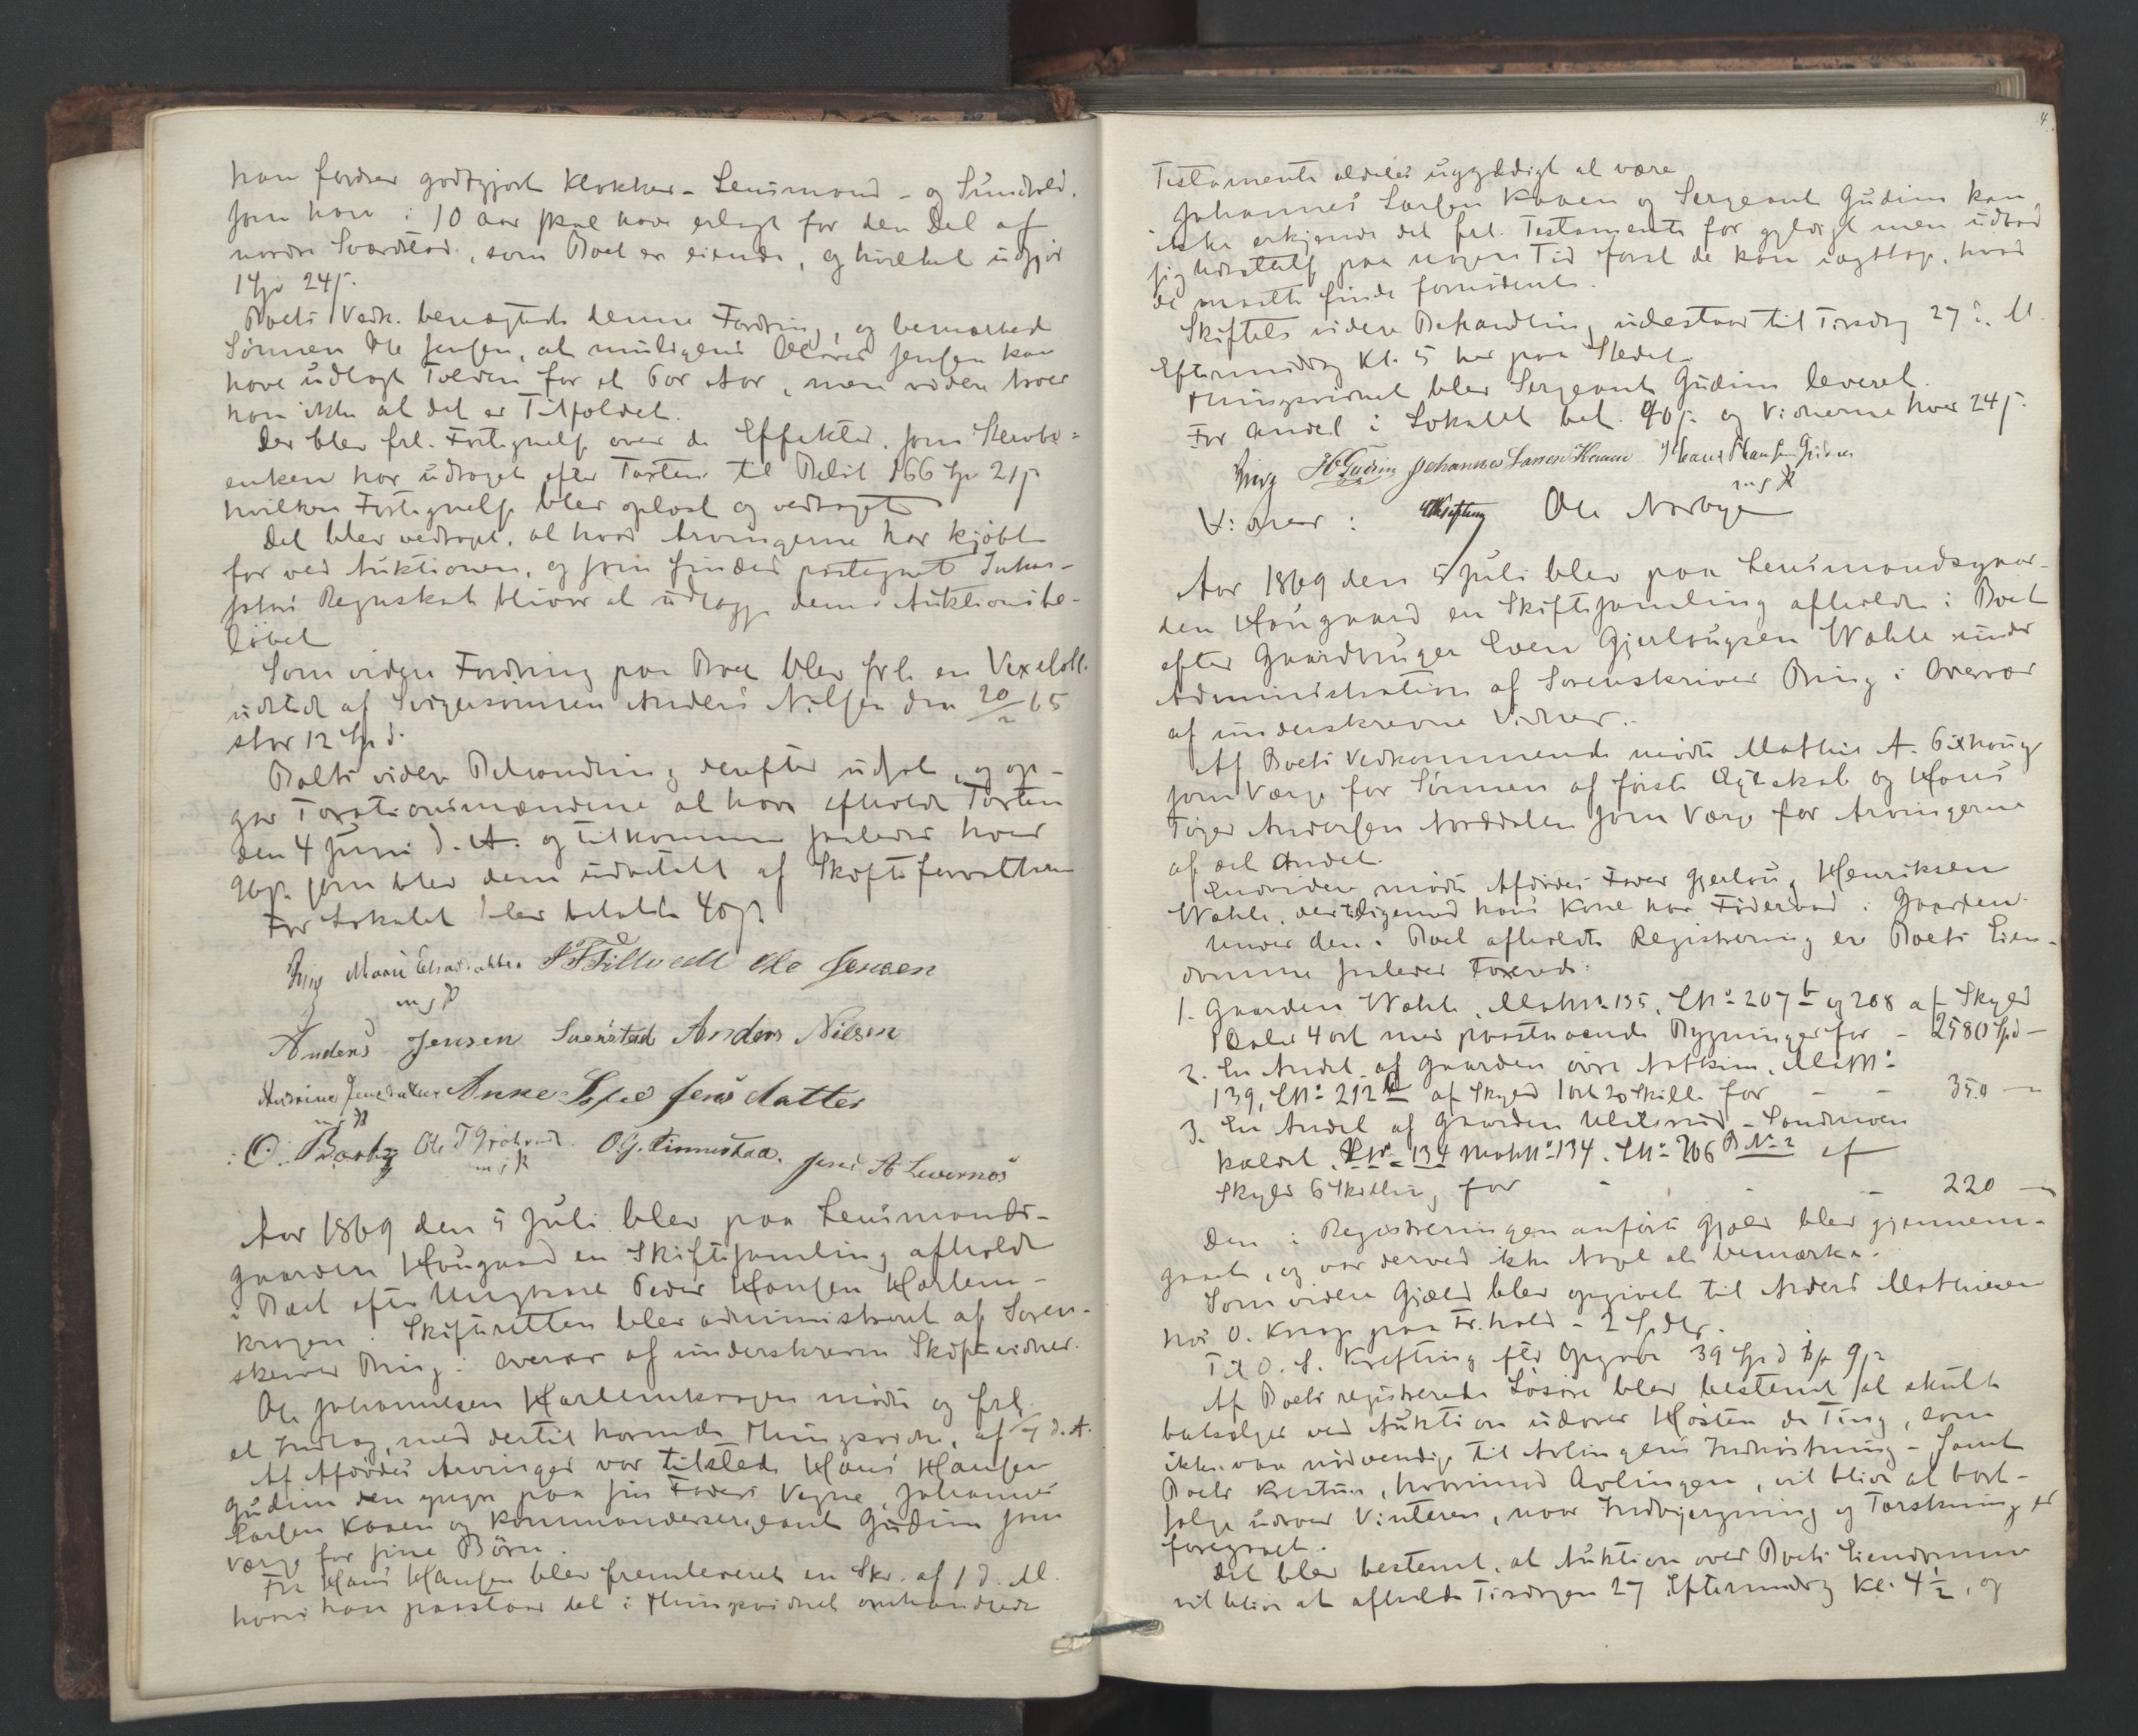 han fordrer godtgjort Klokker- Lensmand- og Sundtold,
som han i 10 Aar skal have erlagt for den Del af
nordre Sværdstad, som Boet er eiende, og hvilket udgjør
14 Spd 24 s.
Boets Vedk. benægtede denne Fordring, og bemærkede
Sønnen Ole Jensen, at muligens Anders Jensen kan
have udlagt Tolden for et Par Aar, men videre troer
han ikke at det er Tilfældet.
Der blev frl. Fortegnelse over de Effekter, som Stervbo=
enken har udtaget efter Taxten til Beløb 166 Sp 21 s
hvilken Fortegnelse blev oplæst og vedtaget
Det blev vedtaget, at hvad Arvingerne har kjøbt
for ved Auktionen, og som findes paategnet Inkas-
sators Regnskab bliver at udlægge dem i Auktionsbe-
løbet
Som videre Fordring paa Boet blev frl. en Vexelobl.
udstedt af Svigersønnen Anders Nilsen den 20/2 65
stor 12 Spd.
Boets videre Behandling derefter udsat, og op-
gav Taxationsmændene at have afholdt Taxten
den 4 Juni d. A. og tilkommer saaledes hver
96 s. som blev dem udbetalt af Skifteforvalteren
For Lokalet blev betalt 40 s
Bing Marie Olsdatter Ole Jensen
m f P
Anders Jensen Sværstad Anders Nilsen
Andrine Jensdatter Anne Sofie Jens datter
m f P
O. Braaby Ole T. O.G. Finnestad. Jens A Levernæs
m f P
Aar 1869 den 5 Juli blev paa Lensmands-
gaarden Hougaard en Skiftesamling afholdt
i Boet efter Ungkarl Peder Hansen Harlem-
krogen. Skifteretten blev administreret af Soren-
skriver Bing i Overvær af underskrevne Skiftevidner.
Ole Johannesen Harlemkrogen mødte og frl.
et Indlæg, med dertil hørende Thingsvidne, af d. A.
Af Afdødes Arvinger var tilstede Hans Hansen
Gudim den yngre paa sin Faders Vegne, Johannes
Larsen Kaaen og Kommandersergeant Gudim som
Værge for sine Børn.
Fra Hans Hansen blev fremleveret en Skr. af 1 d. M.
hvori han paastaar det i Thingsvidnet omhandlede
4.
Testamente aldeles ugyldigt at være
Johannes Larsen Kaaen og Sergeant Gudim kan
ikke erkjende det frl. Testamente for gyldigt men udbad
sig Udsættelse paa nogen Tid forat de kan iagttage, hvad
de maatte finde fornødent.
Skiftets videre Behandling udestaar til Tirsdag 27 d. M.
Eftermiddag Kl. 5 her paa Stedet.
Thingsvidnet blev Sergeant Gudim leveret.
For Andel i Lokalet bet. 40 s. og Vidnerne hver 24 s.
Bing HGudim Johannes Larsen Kaaen Hans Hansen Gudim
m f P
Vidner: Krefting Ole Norbye
Aar 1869 den 5 Juli blev paa Lensmandsgaar-
den Hougaard en Skiftesamling afholdt i Boet
efter Gaardbruger Even Gjerlougsen Wahle under
Administration af Sorenskriver Bing i Overvær
af underskrevne Vidner.
Af Boets Vedkommende mødte Mathis A. Sixhoug
som Værge for Sønnen af første Ægteskab og Hans
Tøger Andersen Norddalen som Værge for Arvingerne
af det Andet.
Endvidere mødte Afdødes Fader Gjerloug Henriksen
Wahle, der tilligemed hans Kone har Føderaad i Gaarden.
Under den i Boet afholdte Registrering er Boets Eien-
domme saaledes Taxerede:
1. Gaarden Wahle, Matr.N: 135, LN: 207 b og 208 af Skyld
1 Daler 4 ort med paastaaende Bygninger for – 2580 Spd –
2. En Andel af Gaarden øvre Natkim, MatrN:
139, LN: 212 b af Skyld 1 ort 20 Skill. for – – 350 –
3. En Andel af Gaarden Ulilsrud – Sandmoen
kaldet, LN: 134 MatrN: 134. LN: 206 B N: 2 af
Skyld 6 Skilling for – – – 220 –
Den i Registreringen anførte Gjæld blev gjennem-
gaaet, og var derved ikke Noget at bemærke.
Som videre Gjæld blev opgivet til Anders Mathiesen
hos O. Krog paa Fr.hald – 2 Spdlr.
Til O. S. Krefting efter Opgave 39 Spd 9 s
Af Boets registrerede Løsøre blev bestemt at skulle
bortsælges ved Auktion udover Høsten de Ting, som
ikke var nødvendige til Avlingens Indhøstning – Samt
Boets Kreaturer, hvorimod Avlingen, vil blive at bort-
sælge udover Vinteren, naar Indbjergning og Tærskning er
foregaaet.
Det blev bestemt, at Auktion over Boets Eiendomme
vil blive at afholde Tirsdagen 27 Eftermiddag Kl. 4½, og